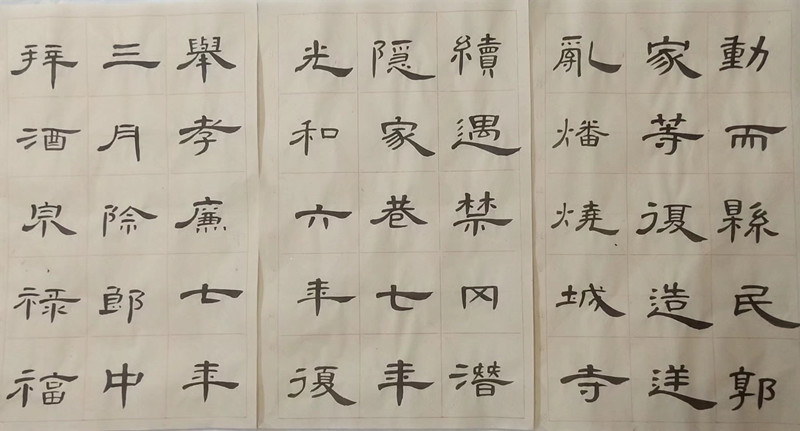 動而縣民郭
家等復造逆
亂燔燒城寺
續遇禁冈潛
隱家巷七年
光和六年復
舉孝廉七年
三月除郎中
拜酒泉禄福